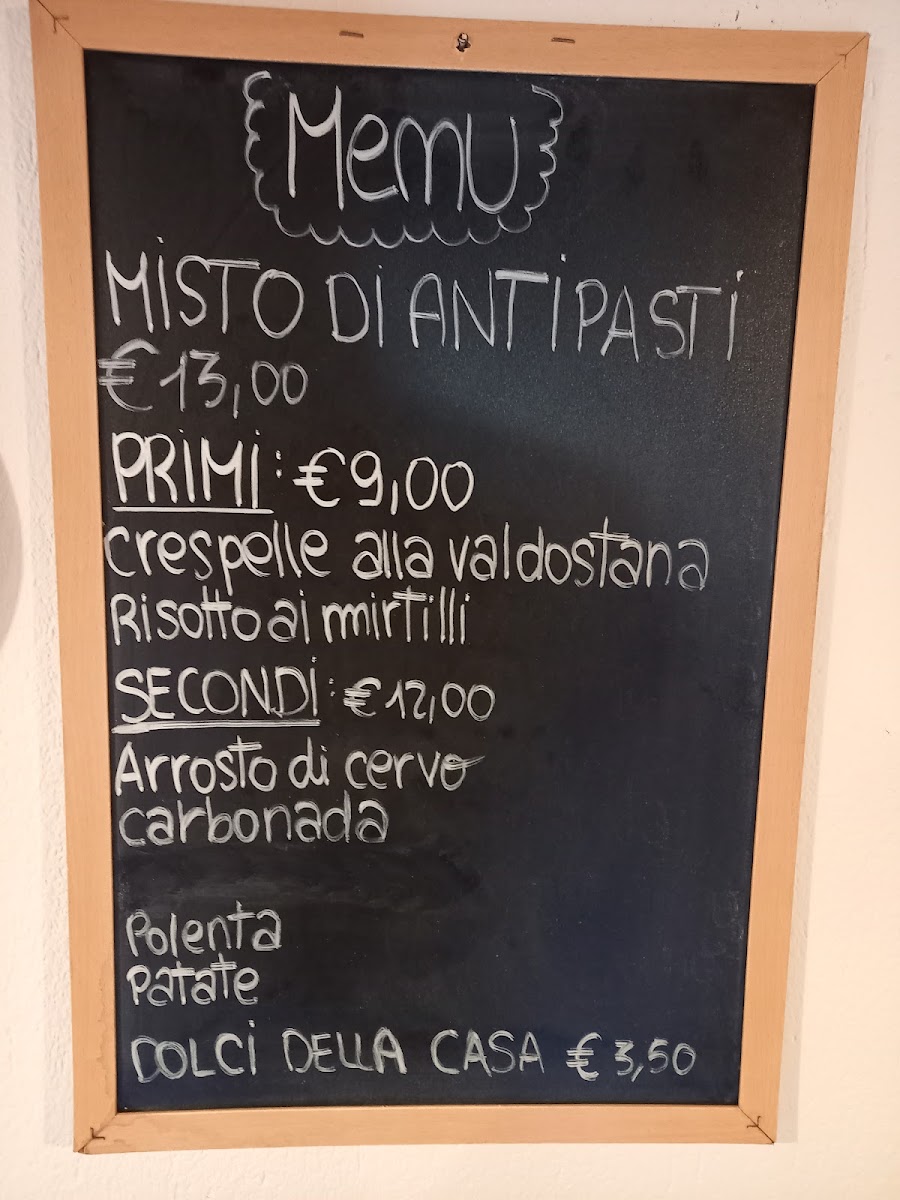 Menu
MISTO DI ANTIPASTI
€ 13,00
PRIMI: € 9,00
crespelle alla valdostana
Risotto ai mirtilli
SECONDI: € 12,00
Arrosto di cervo
carbonada
Polenta
Patate
DOLCI DELLA CASA € 3,50